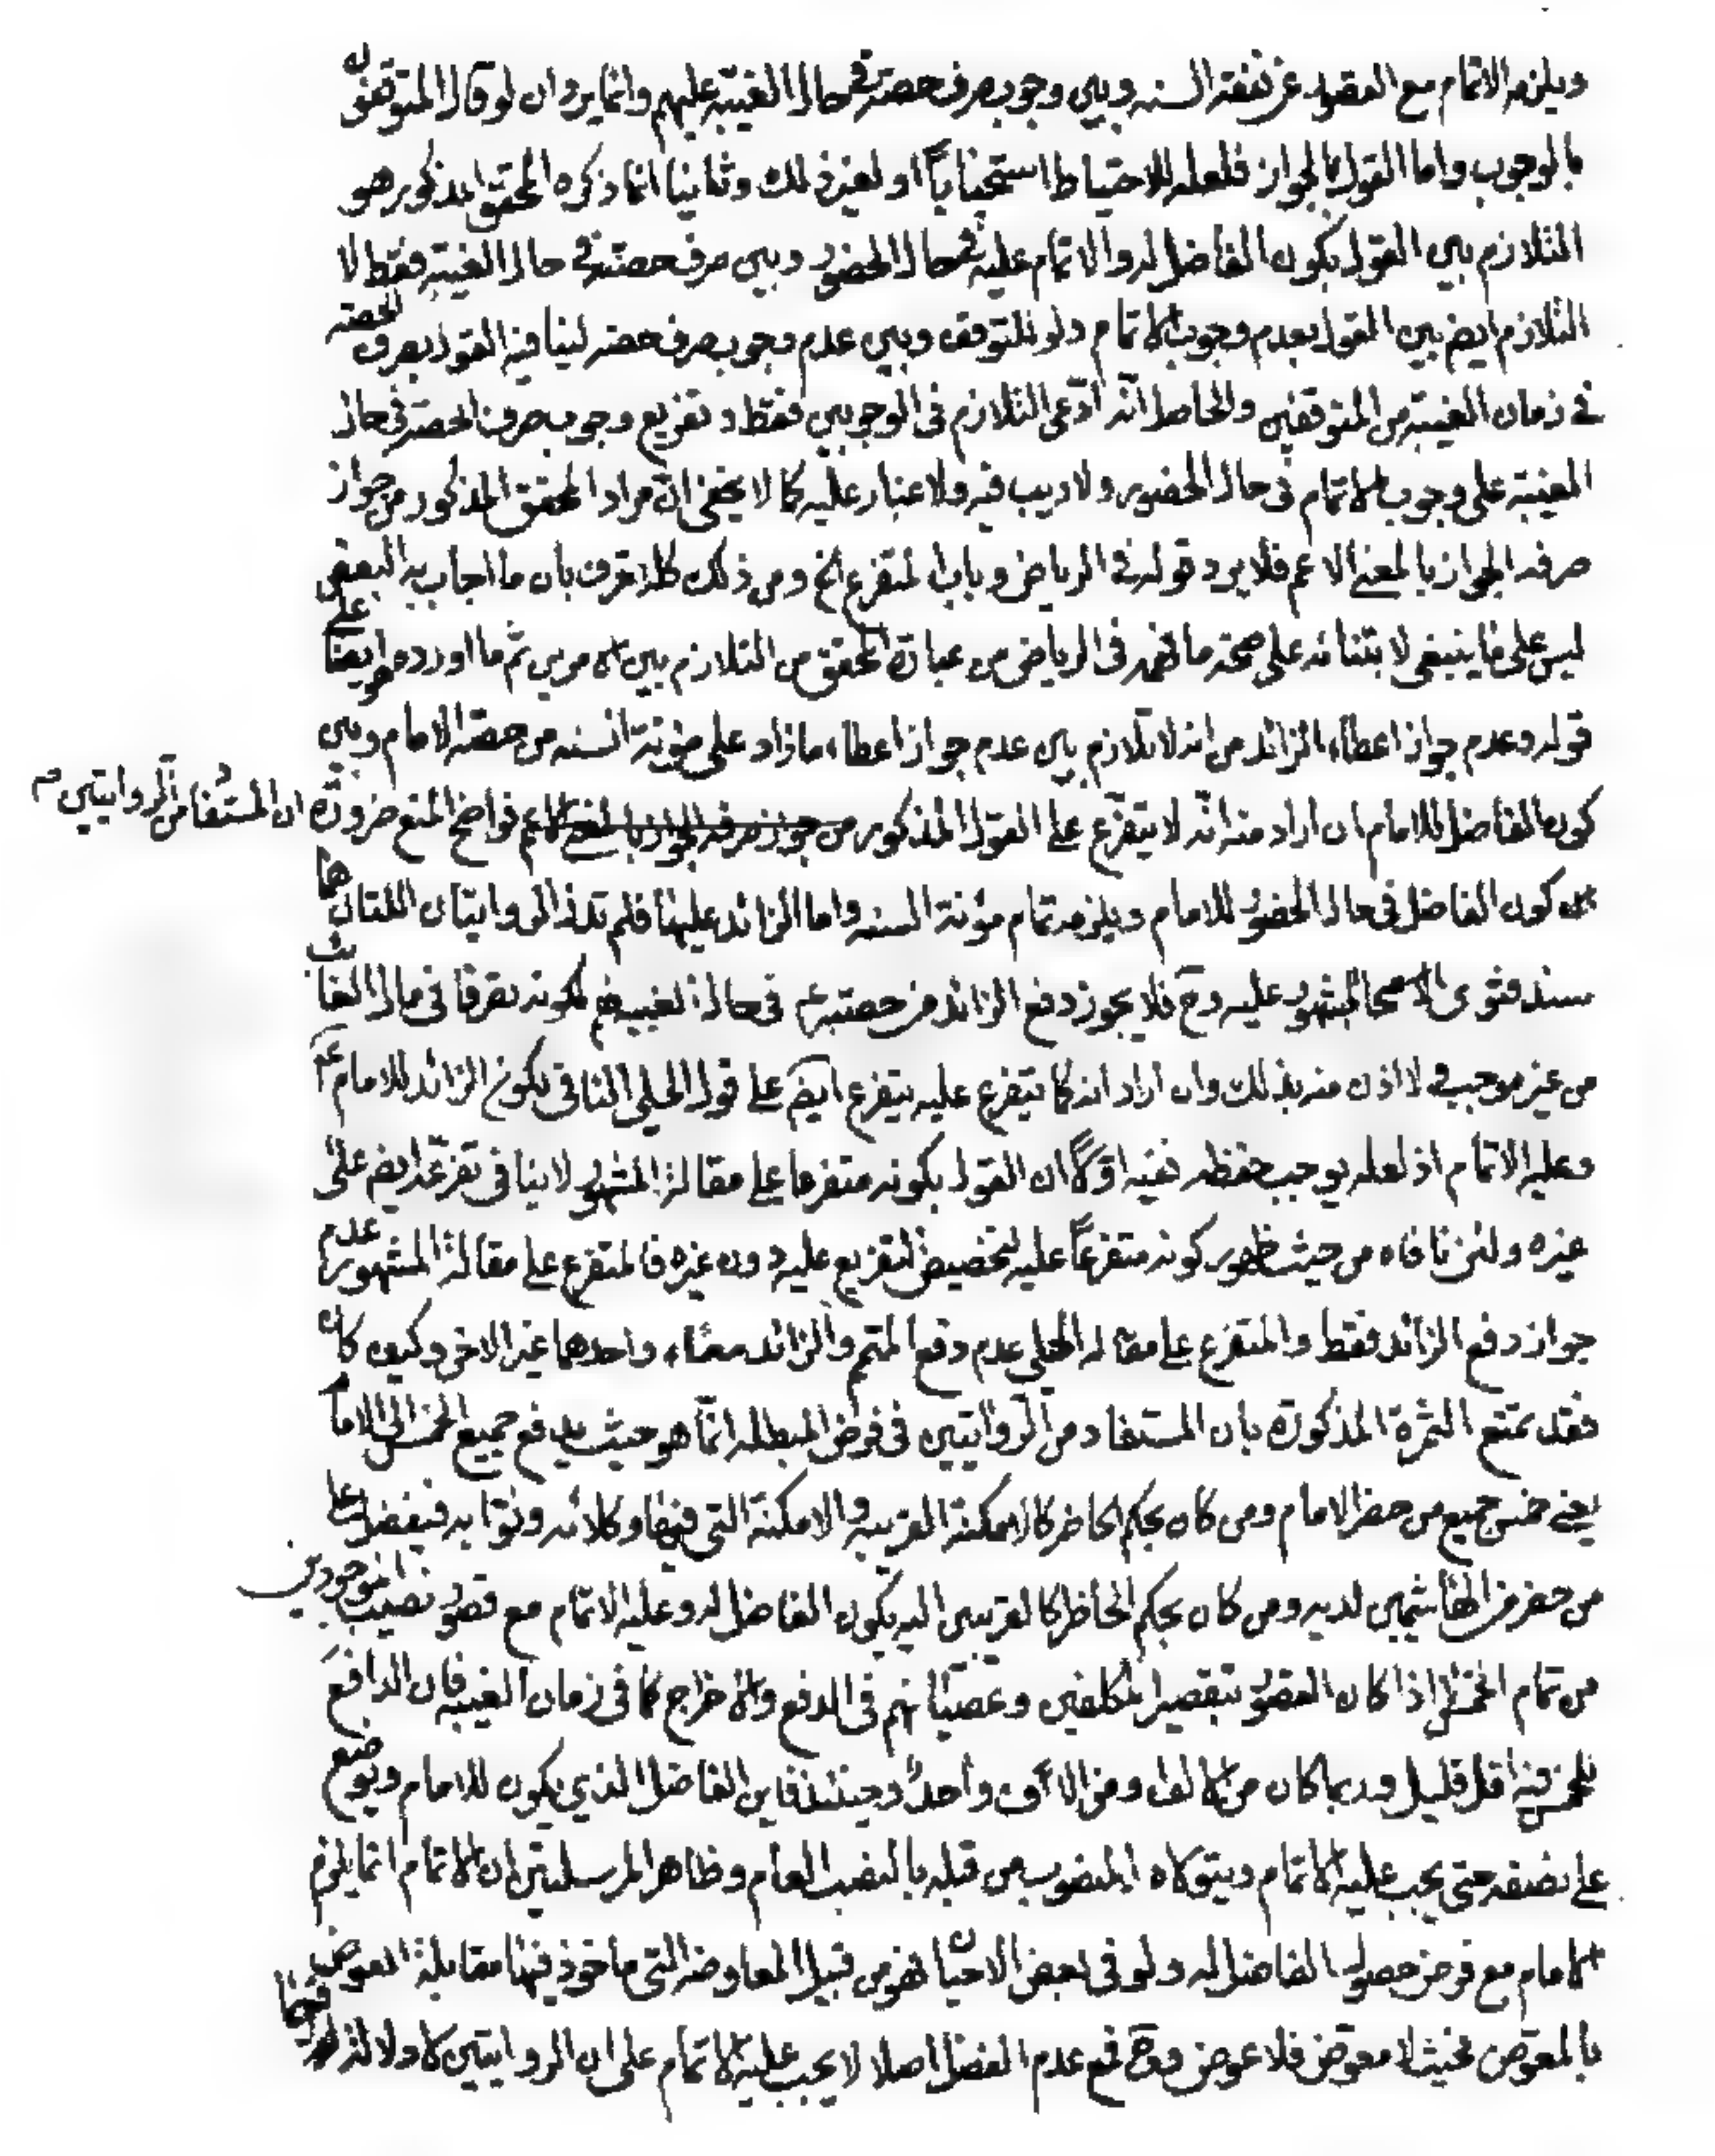 ويلزمه الاتمام مع العقود عن نفقة السنه وبين وجوب صرف حصته في حال الغيبة عليهم وانما يرد ان لو قال المتوقفون
بالوجوب واما القول بالجواز فلعله للاحتياط استحبابا او لغير ذلك وثانيا انما ذكره المحقق المذكور هو
التلازم بين القول بكون الفاضل له والاتمام عليه في حال الحضور وبين صرف حصته في حال الغيبة فقط لا
التلازم ايضا بين القول بعدم وجوب الاتمام ولو للتوقف وبين عدم وجوب صرف حصته لينافيه القول بصرف الحصة
في زمان الغيبة من المتوقفين والحاصل انه ادعى التلازم في الوجوبين فقط وتفريع وجوب صرف الحصة في حال
الغيبة على وجوب الاتمام في حال الحضور ولا ريب فيه ولا غبار عليه كما لا يخفى ان مراد المحقق المذكور من جواز
صرفه الجواز بالمعنى الاعم فلا يرد قوله في الرياض وباب التفرع الخ ومن ذلك كله تعرف بان ما اجاب به البعض
ليس على ما ينبغي لابتنائه على صحة ما فهمه في الرياض من عبارة المحقق من التلازم بين الامرين ثم ما اورده هو ايضا على
قوله وعدم جواز اعطاء الزائد من انه لا تلازم بين عدم جواز اعطاء ما زاد على مؤنة السنه من حصة الامام وبين
كون الفاضل للامام ان اراد منه انه لا يتفرع على القول المذكور من جواز صرفه الجواز بالمعنى الاعم فواضح المنع ضرورة ان المستفاد من الروايتين م
من كون الفاضل في حال الحضور للامام ويلزمه تمام مؤنة السنه واما الزائد عليها فلم تدل الروايتان اللتان هما
سند فتوى الاصحاب المشهور عليه وح فلا يجوز دفع الزائد من حصته ع في حال الغيبة لهم لكونه تصرفا في مال الغائب
من غير موجب ولا اذن منه بذلك وان اراد انه كما يتفرع عليه يتفرع ايضا على قول الحلي النافي لكون الزائد للامام ع
وعليه الاتمام اذ لعله يوجب حفظه ففيه اولا ان القول بكونه متفرعا على مقالة المشهور لا ينافي تفرعه ايضا على
غيره ولئن نافاه من حيث ظهور كونه متفرعا عليه لتخصيص التفريع عليه دون غيره فالمتفرع على مقالة المشهور عدم
جواز دفع الزائد فقط والمتفرع على مقالة الحلي عدم دفع المتمم والزائد معا، واحدهما غير الاخر وكيف كان
فقد تمنع الثمرة المذكورة بان المستفاد من الروايتين في فرض المبطله انما هو حيث يدفع جميع الخمس الى الامام
يعني خمس جميع من حضر الامام ومن كان بحكم الحاضر كالامكنة القريبه والامكنة التي فيها وكلائه ونوابه فيفضل عما
من حضر من الهاشميين لديه ومن كان بحكم الحاضر كالقريبين اليه يكون الفاضل له وعليه الاتمام مع قصور نصيب الموجودين
من تمام الخمس لا اذا كان القصور بتقصير المكلفين وعصيانهم في الدفع والاخراج كما في زمان الغيبة فان الدافع
للخمس فيه اقل قليل وربما كان من الالف ومن الالاف واحد وحينئذ فاين الفاضل الذي يكون للامام ويوضع
على نصفه حتى يجب عليه الاتمام ويتولاه المنصوب من قبله بالنصب العام وظاهر المرسلتين ان الاتمام انما يلزم
الامام مع فرض حصول الفاضل له ولو في بعض الاحيان فهو من قبيل المعاوضة التي ماخوذ فيها مقابلة العوض
بالمعوض فحيث لا معوض فلا عوض وح فمع عدم الفضل اصلا لا يجب عليه الاتمام على ان الروايتين كما لا دلالة لهما فيهما